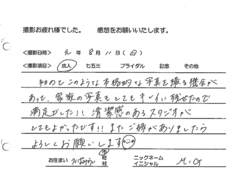 撮影お疲れ様でした。 感想をお願いいたします。
撮影日時 元年 8月11日(日)
撮影種別 成人 七五三 ブライダル 記念 その他
初めてこのような本格的な写真を撮る機会が
あって、家族の写真もとてもキレイに残せたので
満足でした!! 清潔感のあるスタジオが
とてもよかったです!! またご縁がありましたら
よろしくお願いします
お住まい ニックネーム
イニシャル M.G